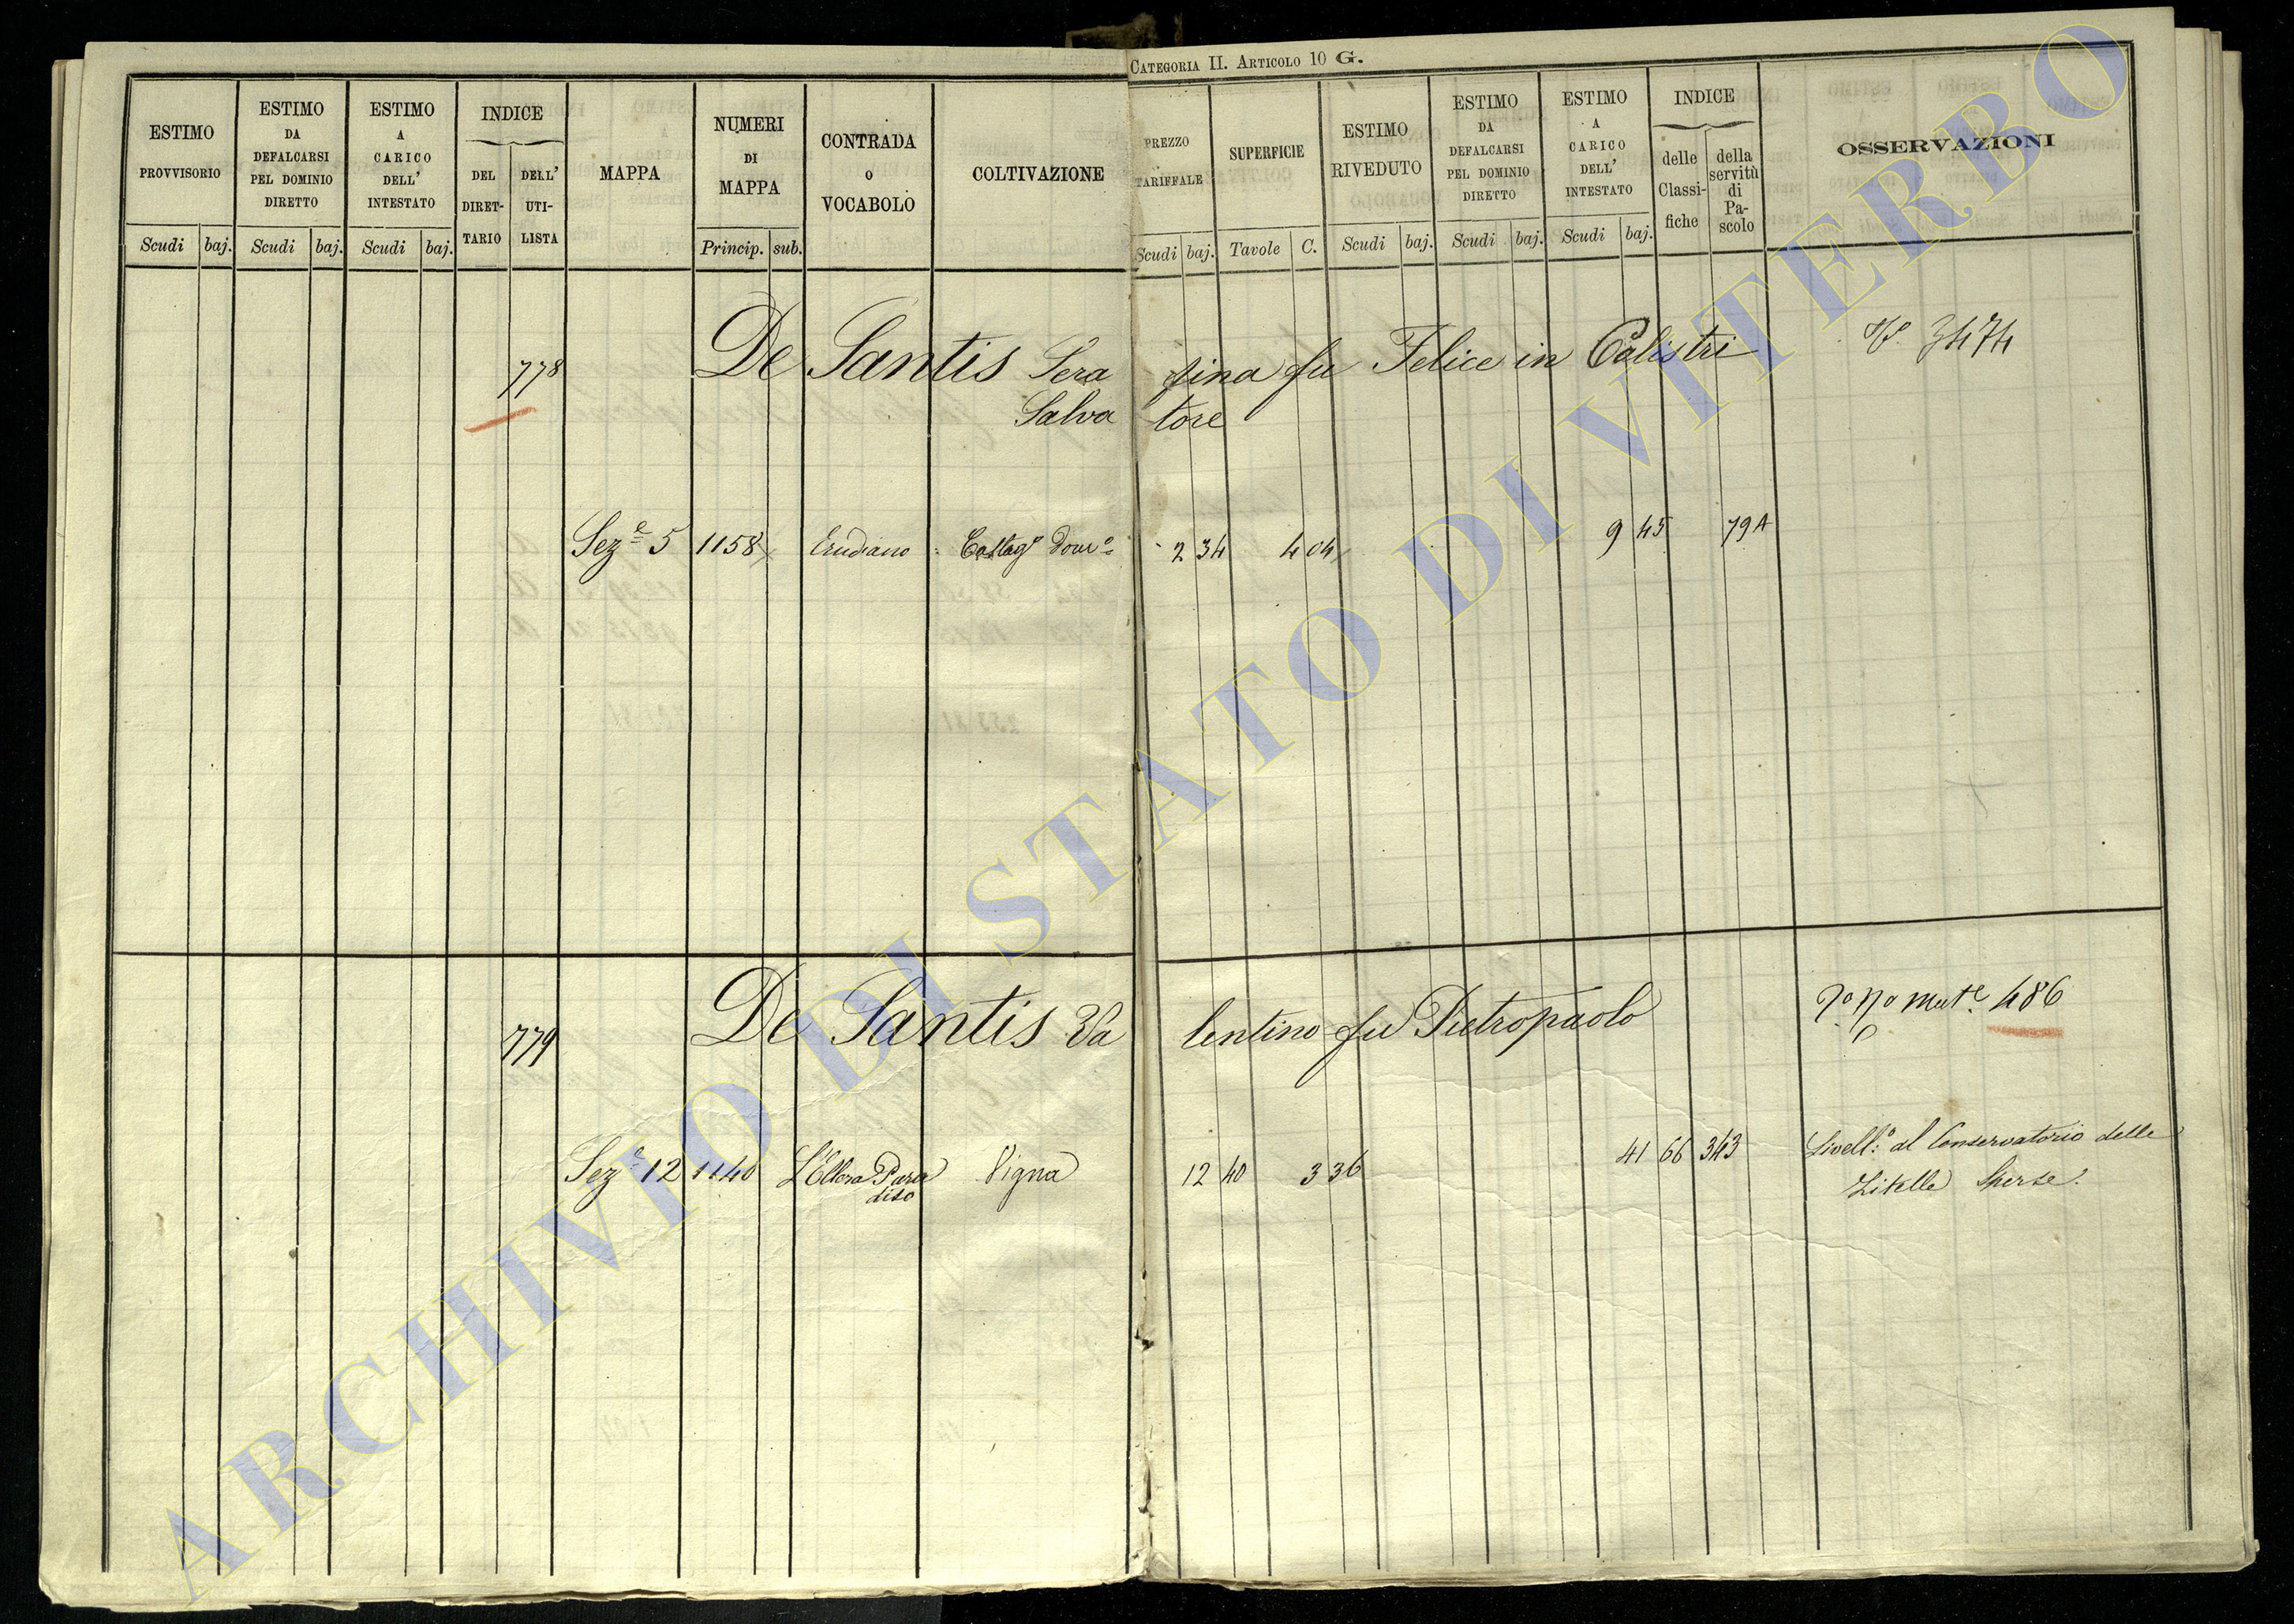 CATEGORIA II. ARTICOLO 10 G.
ESTIMO PROVVISORIO
Scudi baj.
ESTIMO DA DEFALCARSI PEL DOMINIO DIRETTO
Scudi baj.
ESTIMO A CARICO DELL' INTESTATO
Scudi baj.
INDICE
DEL DIRET-TARIO
DELL' UTI-LISTA
MAPPA
NUMERI DI MAPPA
Princip. sub.
CONTRADA O VOCABOLO
COLTIVAZIONE
PREZZO TARIFFALE
Scudi baj.
SUPERFICIE
Tavole C.
ESTIMO RIVEDUTO
Scudi baj.
ESTIMO DA DEFALCARSI PEL DOMINIO DIRETTO
Scudi baj.
ESTIMO A CARICO DELL' INTESTATO
Scudi baj.
INDICE
delle Classi-fiche
della servitù di Pa-scolo
OSSERVAZIONI
778 De Santis Sera fina fu Felice in Calistri 3474
Salva tore
Sez.e 5 1158 Castag.o Dom.o 2 34 4 04 9 45 79A
779 De Santis Va lentino fu Pietropaolo mut.e 486
Sez.e 12 1140 Para Vigna 12 40 3 36 41 66 343 Livell.o al Conservatorio delle
diso Zitelle Sperse.
ARCHIVIO DI STATO DI VITERBO